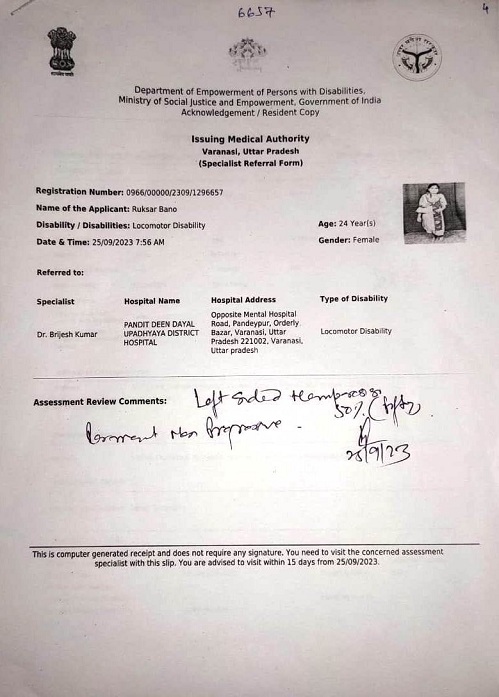 6657
4
Department of Empowerment of Persons with Disabilities,
Ministry of Social Justice and Empowerment, Government of India
Acknowledgement / Resident Copy
Issuing Medical Authority
Varanasi, Uttar Pradesh
(Specialist Referral Form)
Registration Number: 0966/00000/2309/1296657
Name of the Applicant: Ruksar Bano
Disability / Disabilities: Locomotor Disability
Age: 24 Year(s)
Date & Time: 25/09/2023 7:56 AM
Gender: Female
Referred to:
Specialist Hospital Name Hospital Address Type of Disability
Dr. Brijesh Kumar
PANDIT DEEN DAYAL
UPADHYAYA DISTRICT
HOSPITAL
Opposite Mental Hospital
Road, Pandeypur, Orderly
Bazar, Varanasi, Uttar
Pradesh 221002, Varanasi,
Uttar pradesh
Locomotor Disability
Assessment Review Comments: Left sided
50% (fifty)
Non
25/9/23
This is computer generated receipt and does not require any signature. You need to visit the concerned assessment
specialist with this slip. You are advised to visit within 15 days from 25/09/2023.